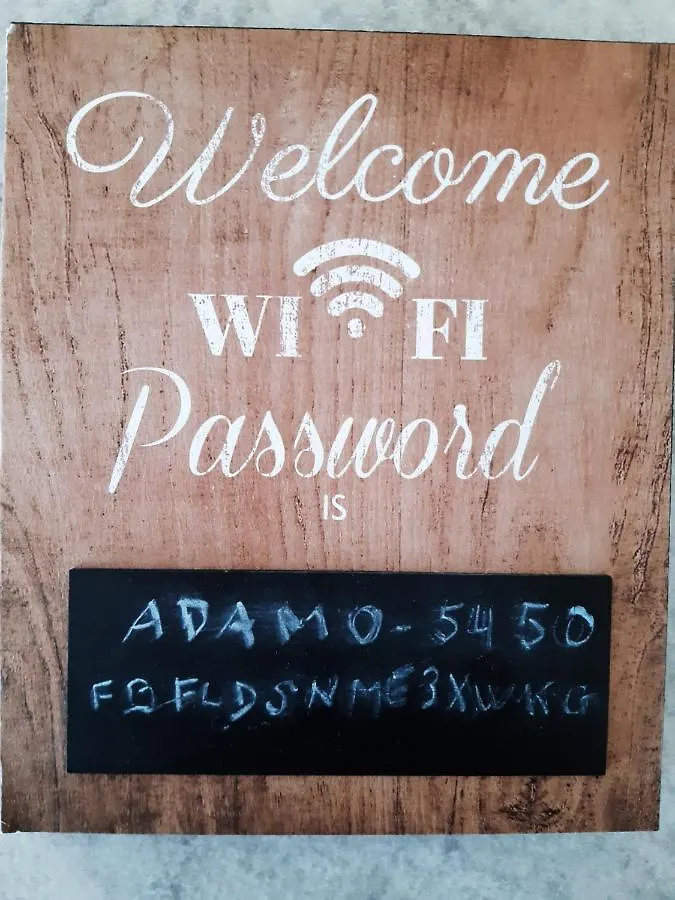 Welcome
WI FI
Password
IS
ADAMO-5450